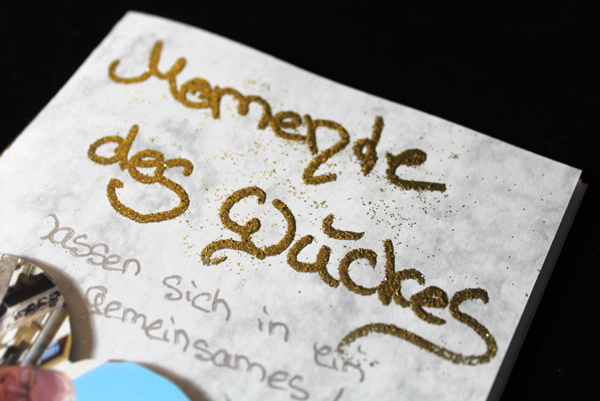 Momente
des
Glückes
lassen sich in ein
gemeinsames